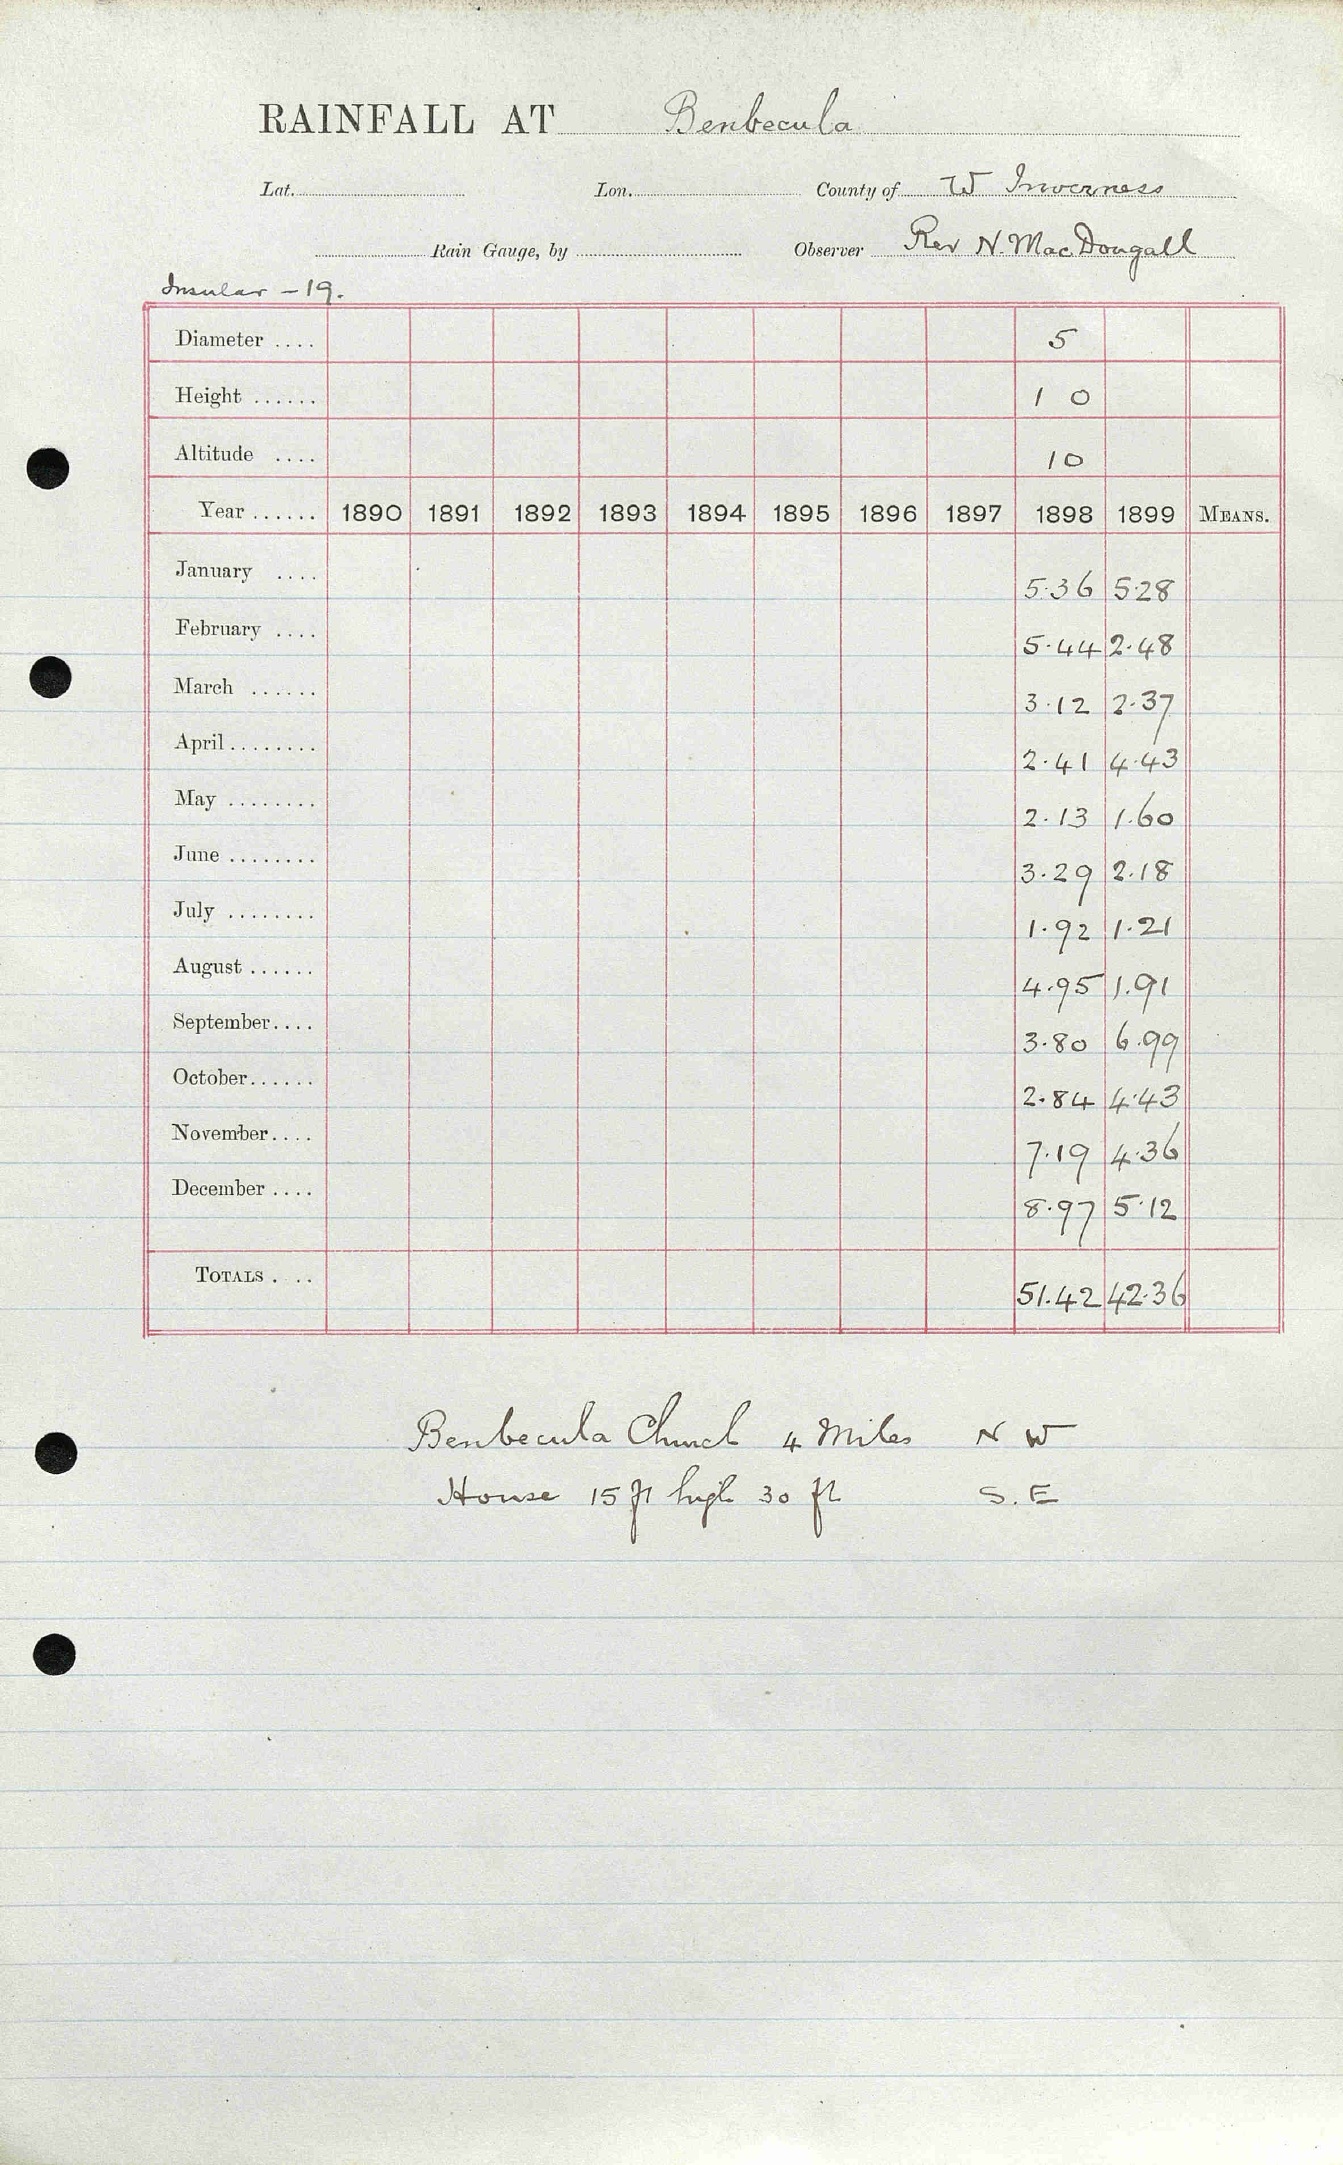 RAINFALL AT Benbecula
Lat. Lon. County of W Inverness
Rain Gauge, by Observer Rev N. MacDougall
Insular - 19.
Diameter .... 5
Height ...... 1 0
Altitude .... 10
Year ...... 1890 1891 1892 1893 1894 1895 1896 1897 1898 1899 MEANS.
January .... 5.36 5.28
February .... 5.44 2.48
March ...... 3.12 2.37
April ........ 2.41 4.43
May ........ 2.13 1.60
June ........ 3.29 2.18
July ........ 1.92 1.21
August ...... 4.95 1.91
September .... 3.80 6.99
October ...... 2.84 4.43
November .... 7.19 4.36
December .... 8.97 5.12
TOTALS . .. 51.42 42.36
Benbecula Church 4 Miles N W
House 15 ft high 30 ft S. E